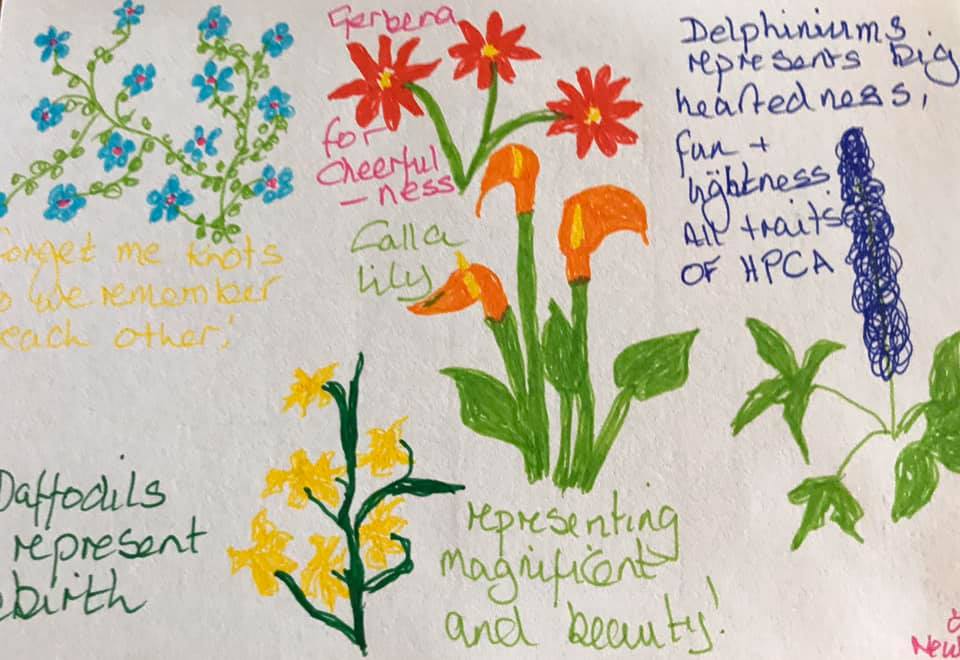 Gerbena
for
Cheerful
- ness
Delphiniums
represents Big
heartedness,
fun +
lightness.
All traits
OF HPCA
forget me knots
so we remember
each other!
Calla
lily
representing
magnificent
and beauty!
Daffodils
represent
ebirth
New